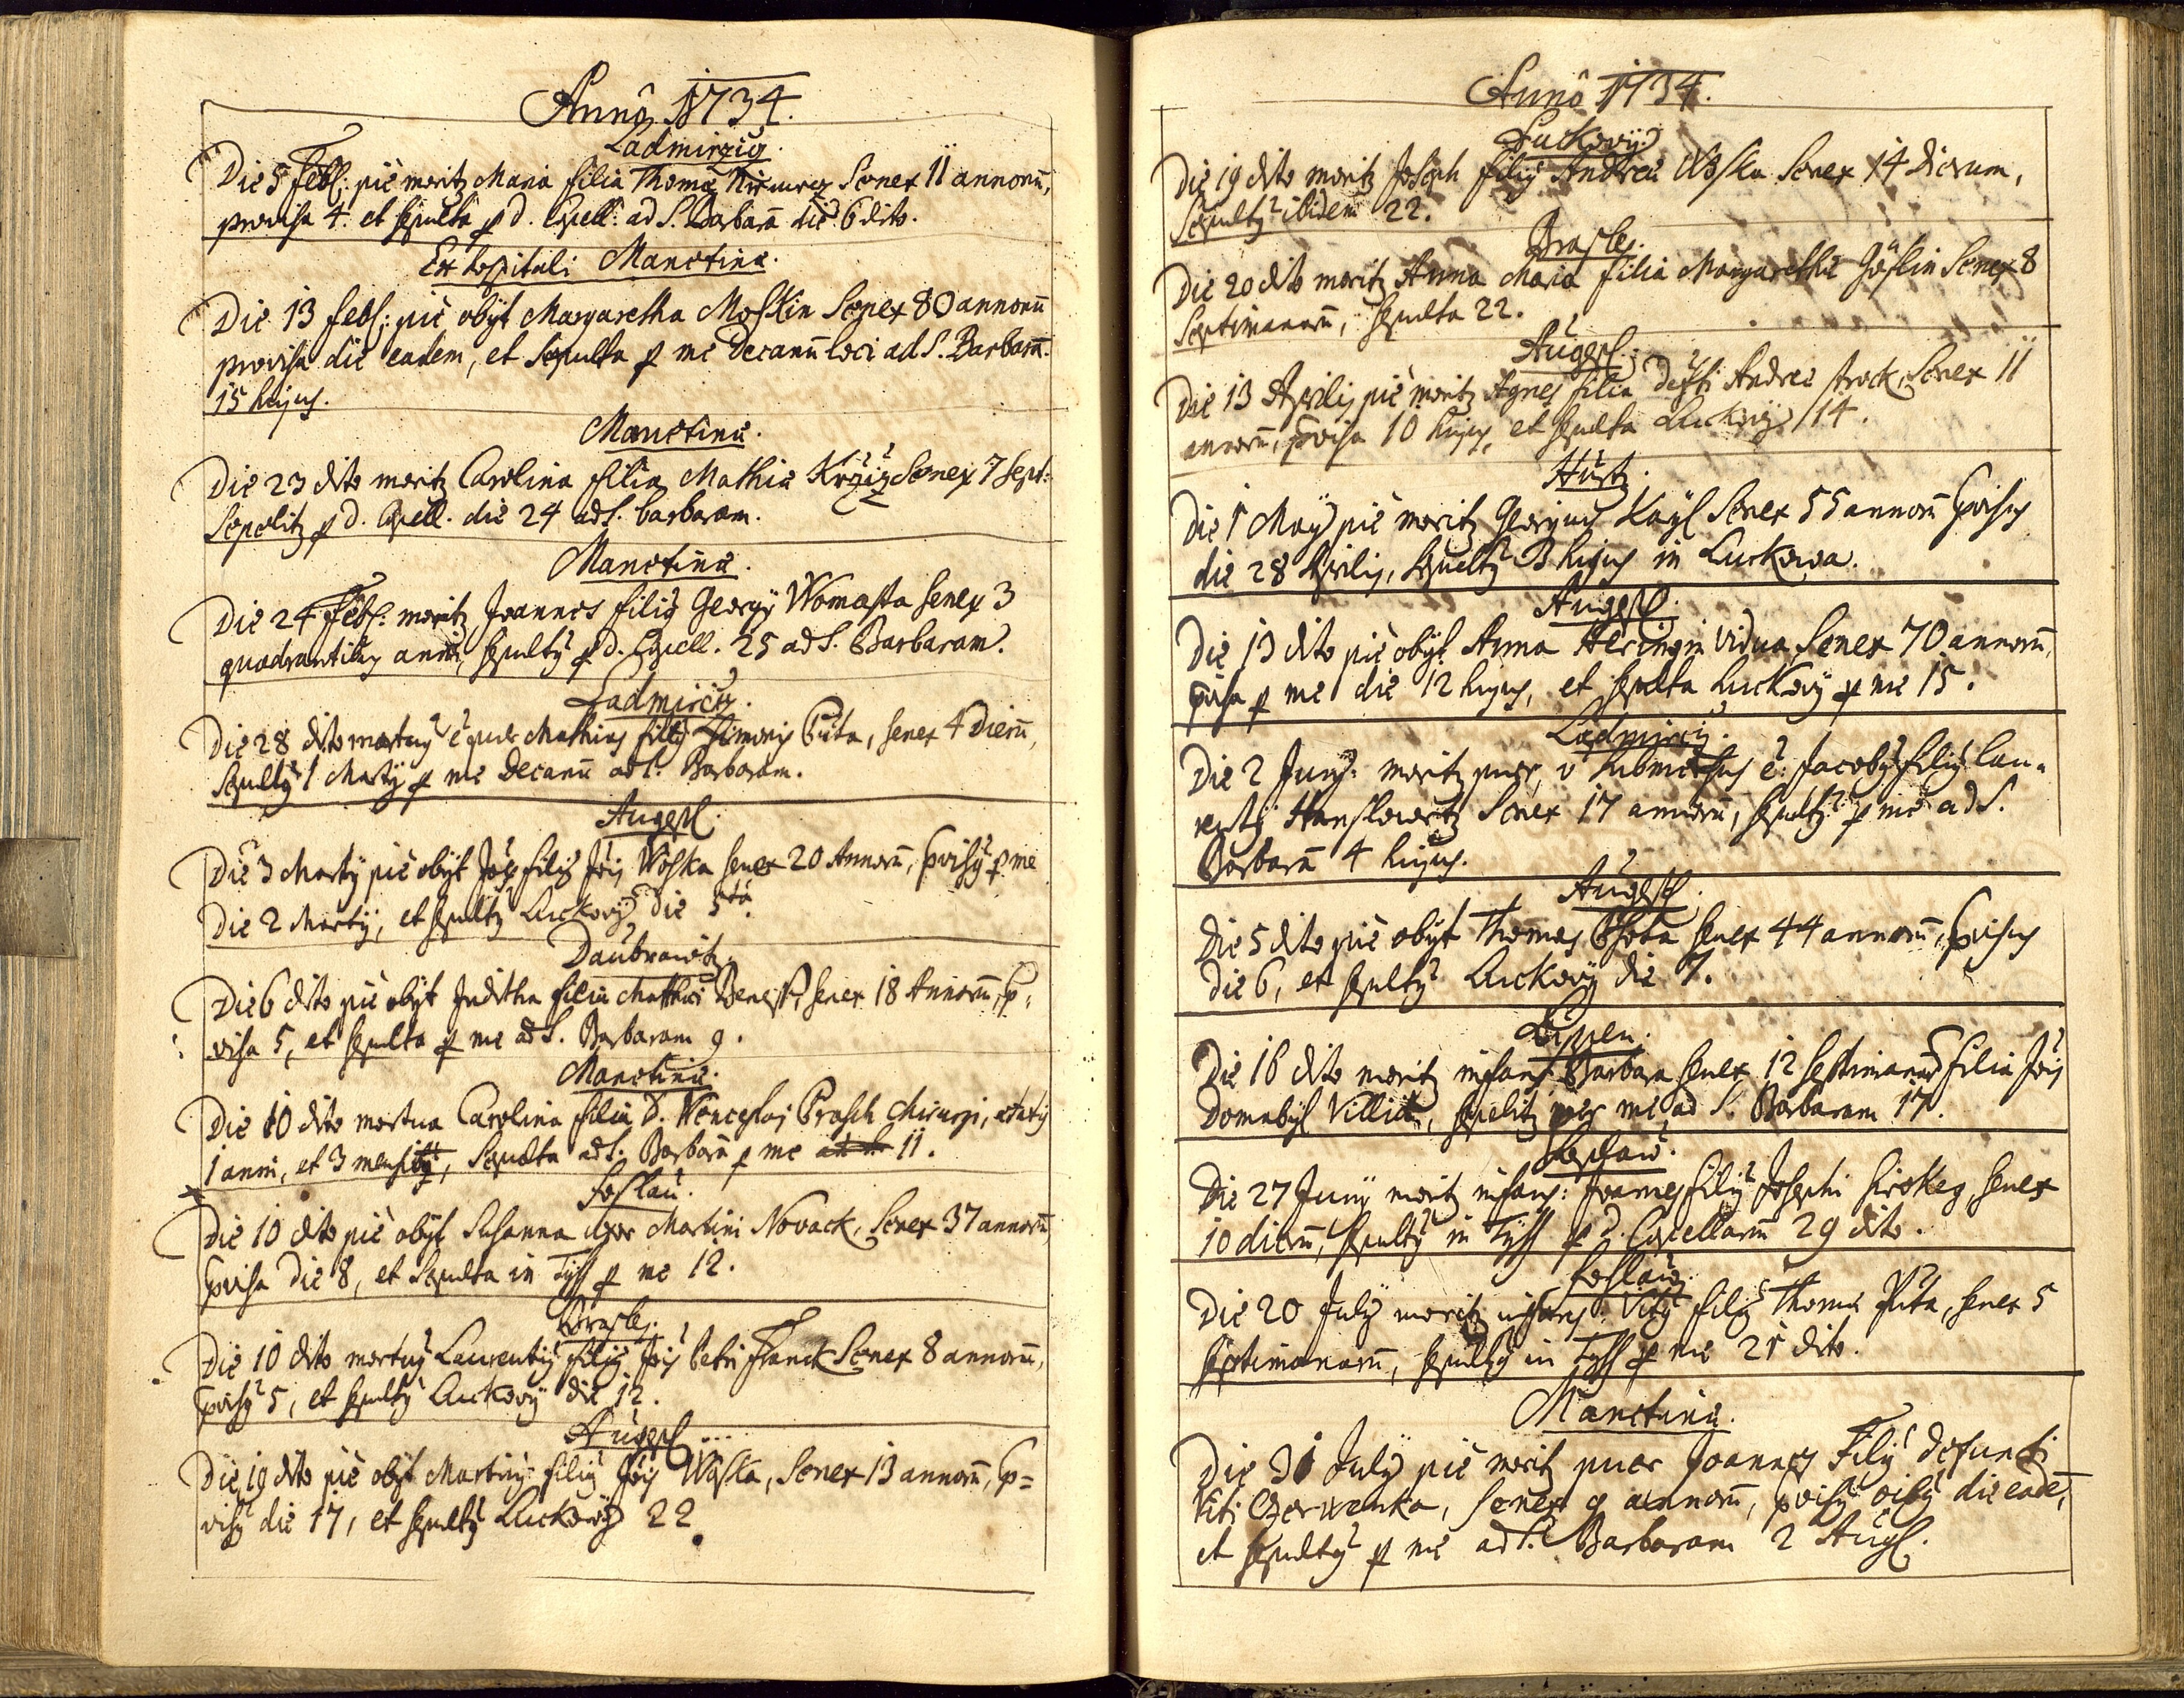 Annô 1734.
Ladmirziz.
Die 5 Feb: pië moritz Maria filia Thomæ Senex 11 annorũ,
provisa 4. et sepulta p d. Capell: ad S. Barbarã die 6 dito.
Ex hospitali Manetinæ.
Die 13 feb: pië obÿt Margaretha Moskin Senex 80 annorũ
provisa die eadem, et sepulta p me Decanũ loci ad S. Barbarã.
15 hujus.
Manetinæ.
Die 23 dito moritz Carolina filia Mathiæ Senex 7 Sept:
Sepelitz p d. Capell. die 24 ad S. barbaram.
Manetinæ.
Die 24 Feb: moritz Joannes filiq Georgÿ Womasta Senex 3
quadrantibus anni, sepultq p d. Capell. 25 ad S. Barbaram.
Ladmiržiz.
Die 28 dito mortuus ë puer Mathias filiq Simonis Puta, senex 4 dierũ,
sepultq 1 Martÿ p me Decanũ ad S. Barbaram.
Augezl.
Die 3 Martÿ pië obÿt filiq Jõis Woska senex 20 Annorũ, pvisq p me
Die 2 Martÿ, et sepultq Luckovÿ die 5tâ.
Daubrawitz.
Die 6 dito pië obÿt Juditha filia Mathæi Beness, senex 18 Annorũ, p=
visa 5, et sepulta p me ad S. Barbaram 9.
Manetinæ.
Die 10 dito mortua Carolina filia D. Wenceslai Prasch Chirurgi, ætatis
1 anni, et 3 mensiũ, Sepulta ad S. Barbarã p me 11.
Hoslau.
Die 10 dito pië obÿt Susanna uxor Martini Novack, Senex 37 annorũ,
pvisa Die 8, et sepulta in Tÿss p me 12.
Brasles.
Die 10 dito mortuq Laurentiq filiq Jõis Petri Franck Senex 8 annorũ,
pvisq 5, et sepultq Luckovÿ die 12.
Augezl
Die 19 dito pië obÿt Martinq filiq Jõis Woska, Senex 13 annorũ, p=
visq die 17, et sepultq Luckovÿ 22.
Annô 1734.
Luckovÿ.
Die 19 dito moritz Joseph filiq Andreæ Woska Senex 14 dierum,
Sepultq ibidem 22.
Brasles.
Die 20 dito moritz Anna Maria filia Margarethæ Senex 8
Septimanarũ, sepulta 22.
Augezl.
Die 13 Aprilis pië moritz Agnes filia defti Andreæ Senex 11
annorũ, pvisa 10 hujus, et sepulta Luckovÿ 14.
Hurtz.
Die 1 Maÿ pië moritz Georgius Senex 55 annorũ pvisus
die 28 Aprilis, sepultq 3 hujus in Luckowa.
Augezl.
Die 13 dito pië obÿt Anna Heringin vidua Senex 70 annorũ,
pvisa p me die 12 hujus, et sepulta Luckovÿ p me 15.
Ladmirziz.
Die 2 Junÿ: moritz puer, ë: Jacobq filiq Lau=
rentÿ Senex 17 annorũ, sepultq p me ad S.
Barbarã 4 hujus.
Augezl.
Die 5 dito pië obÿt Thomas senex 44 annorũ, pvisus
die 6, et sepultq Luckovÿ die 7.
Lippen.
Die 16 dito moritz infans Barbara senex 12 septimanarũ filia Jõis
Domabÿl Villici, sepelitz per me ad S. Barbaram 17.
Hoslau.
Die 27 Junÿ moritz infans: Joannes filiq Josephi Sirokeg senex
10 dierũ, sepultq in Tÿss p d. Capellanũ 29 dito.
Hoslau.
Die 20 Julÿ moritz infans: Vitq filiq Thomæ Puta, senex 5
septimanarũ, sepultq in Tÿss p me 21 dito.
Manetinæ.
Die 31 Julÿ pië moritz puer Joannes Filiq defuncti
Viti Czerwenka, senex 9 annorũ, pvisq die eadẽ,
et sepultq p me ad S. Barbaram 2 Aug.